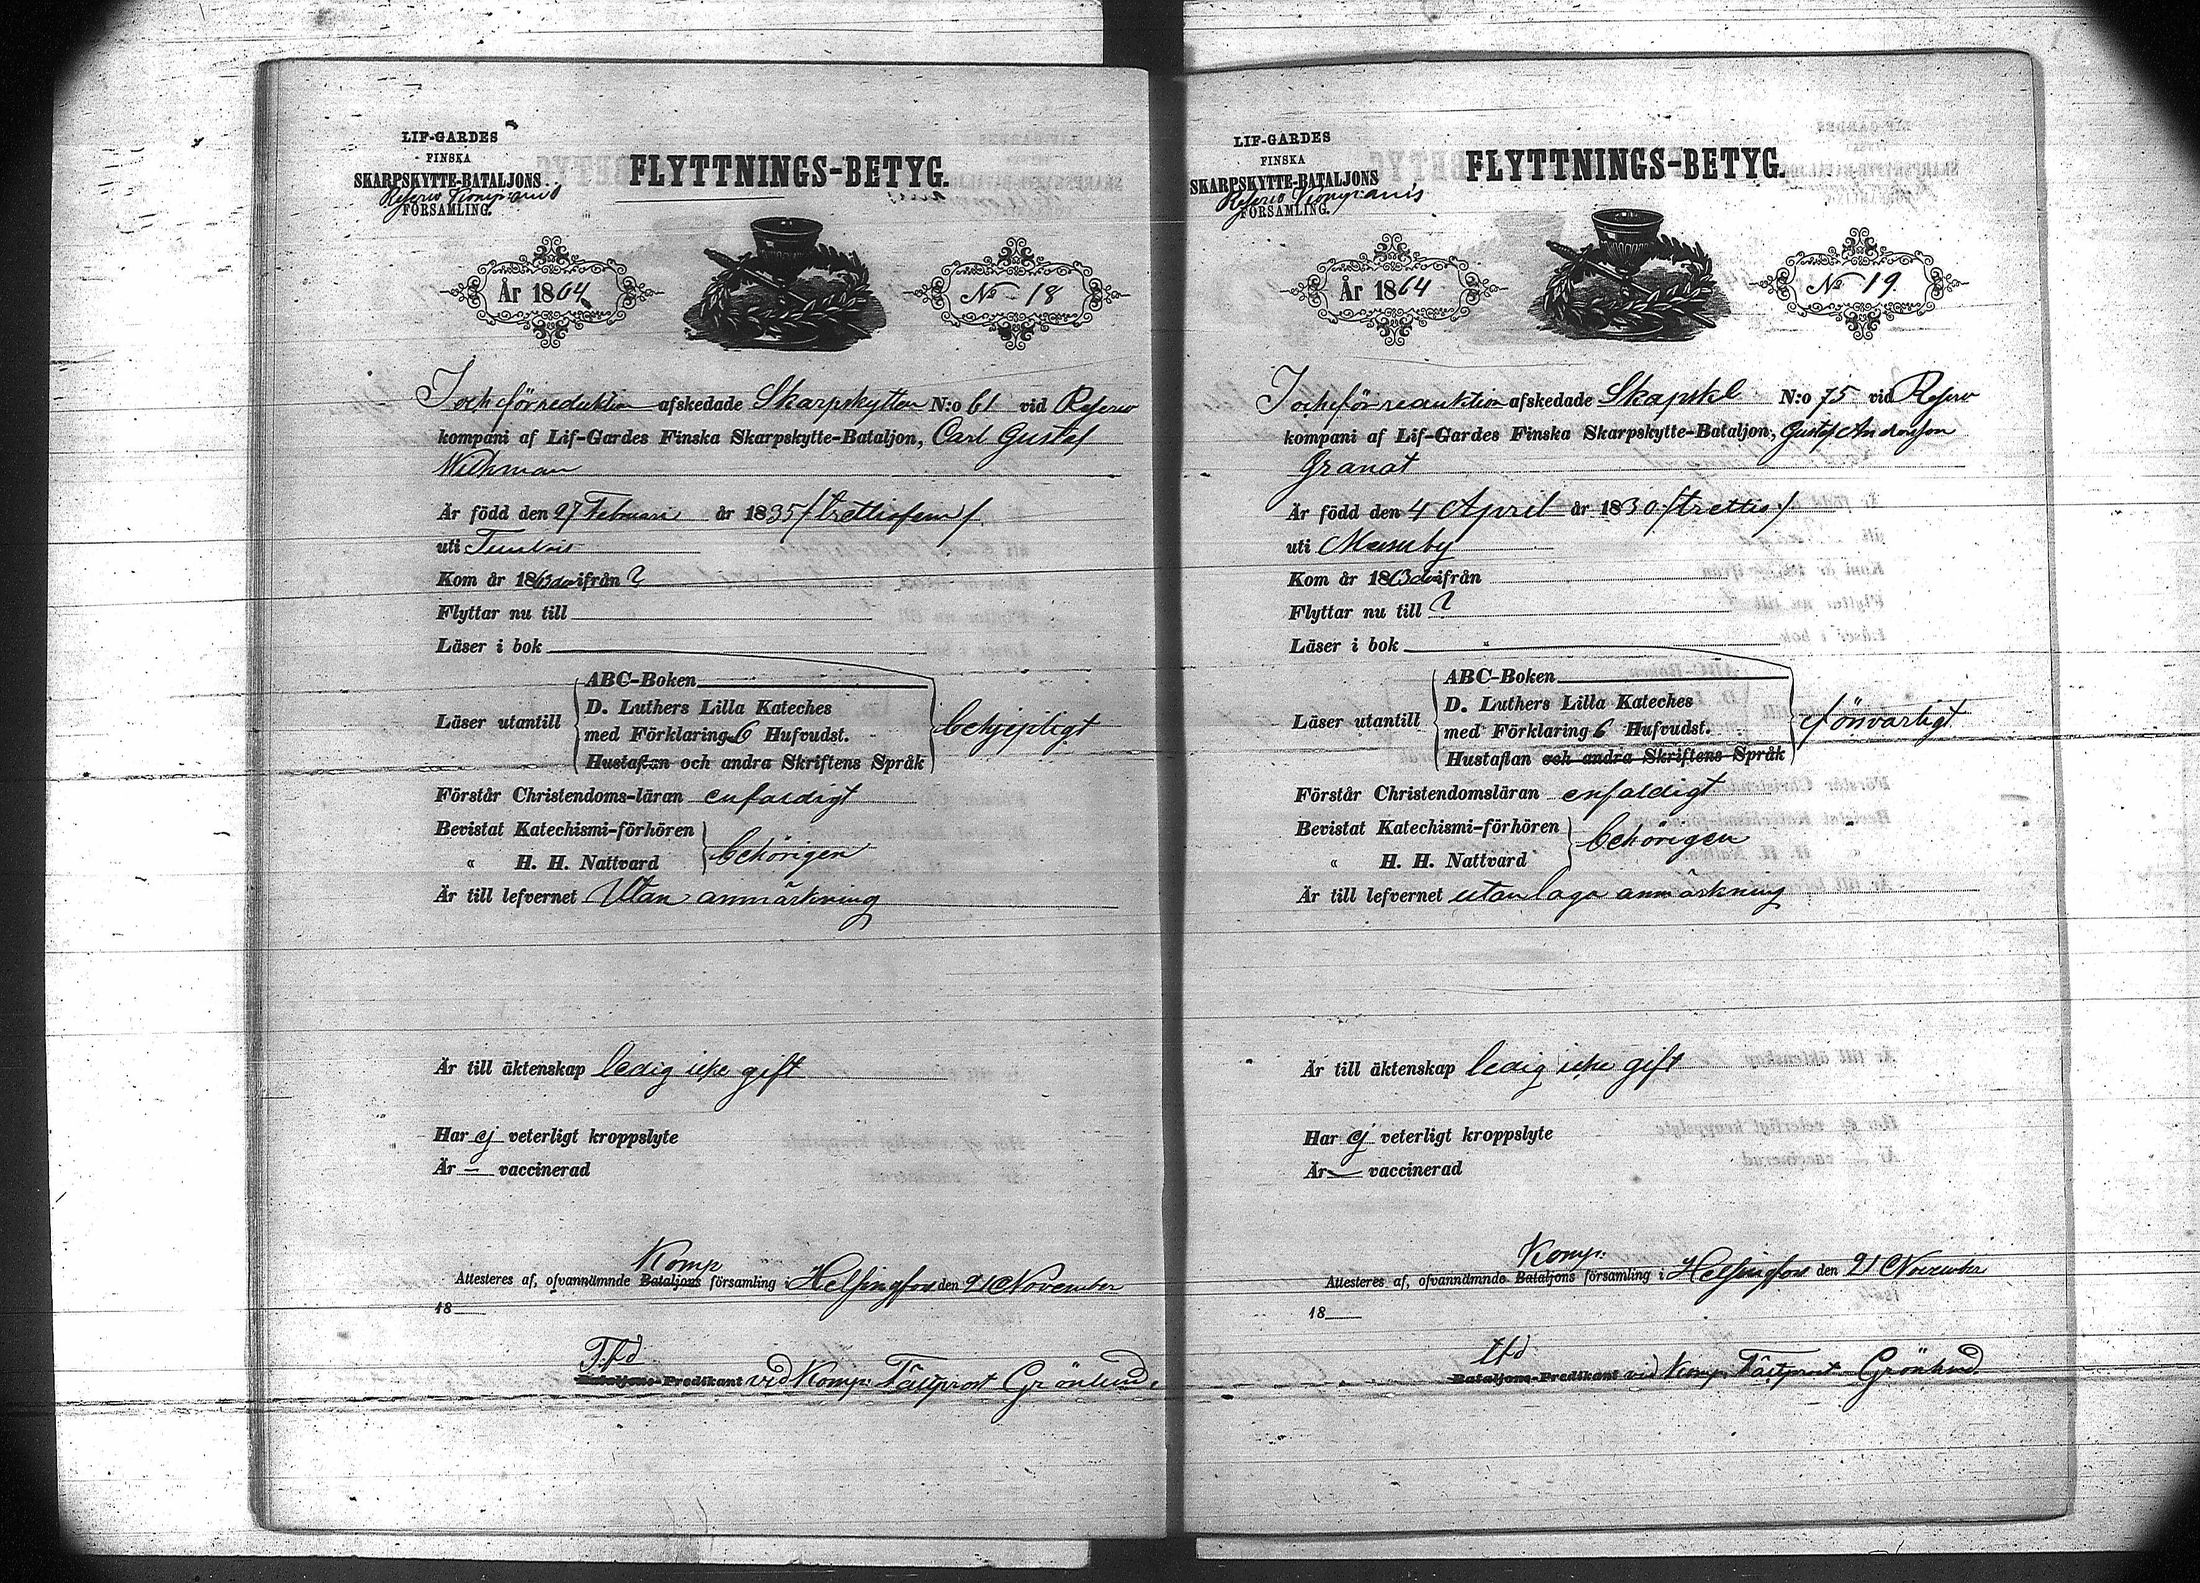 LIF-GARDES
FINSKA
SKARPSKYTTE-BATALJONS
Reserv Kompanis
FÖRSAMLING.
FLYTTNINGS-BETYG.
År 1864
No 18
I och för reduktion afskedade Skarpskytten N:o 61 vid Reserv
kompani af Lif-Gardes Finska Skarpskytte-Bataljon, Carl Gustaf
Wickman
Är född den 27 Februari år 1835 /trettiofem/
uti
Kom år 1863 ifrån ?
Flyttar nu till
Läser i bok
Läser utantill
ABC-Boken
D. Luthers Lilla Kateches
med Förklaring 6 Hufvudst.
Hustaflan och andra Skriftens Språk
behjelpligt
Förstår Christendoms-läran enfaldigt
Bevistat Katechismi-förhören
« H. H. Nattvard
behörigen
Är till lefvernet Utan anmärkning
Är till äktenskap ledig icke gift
Har ej veterligt kroppslyte
Är — vaccinerad
Komp
Attesteres af, ofvannämnde Bataljons församling i Helsingfors den 21 November
18
T.f.d
Bataljons-Predikant vid Komp: Fältprost Grönlund.
LIF-GARDES
FINSKA
SKARPSKYTTE-BATALJONS
Reserv Kompanis
FÖRSAMLING.
FLYTTNINGS-BETYG.
År 1864
No 19.
I och för reduktion afskedade Skapskl N:o 75 vid Reserv
kompani af Lif-Gardes Finska Skarpskytte-Bataljon, Gustaf Andersson
Granat
Är född den 4 April år 1830 /trettio/
uti Masuby
Kom år 1863 ifrån
Flyttar nu till ?
Läser i bok "
Läser utantill
ABC-Boken
D. Luthers Lilla Kateches
med Förklaring 6 Hufvudst.
Hustaflan och andra Skriftens Språk
försvarligt
Förstår Christendomsläran enfaldigt
Bevistat Katechismi-förhören
« H. H. Nattvard
behörigen
Är till lefvernet utan laga anmärkning
Är till äktenskap ledig icke gift
Har ej veterligt kroppslyte
Är — vaccinerad
Komp:
Attesteres af, ofvannämnde Bataljons församling i Helsingfors den 21 November
18
tfd
Bataljons-Predikant vid Komp, Fältprost Grönlund.